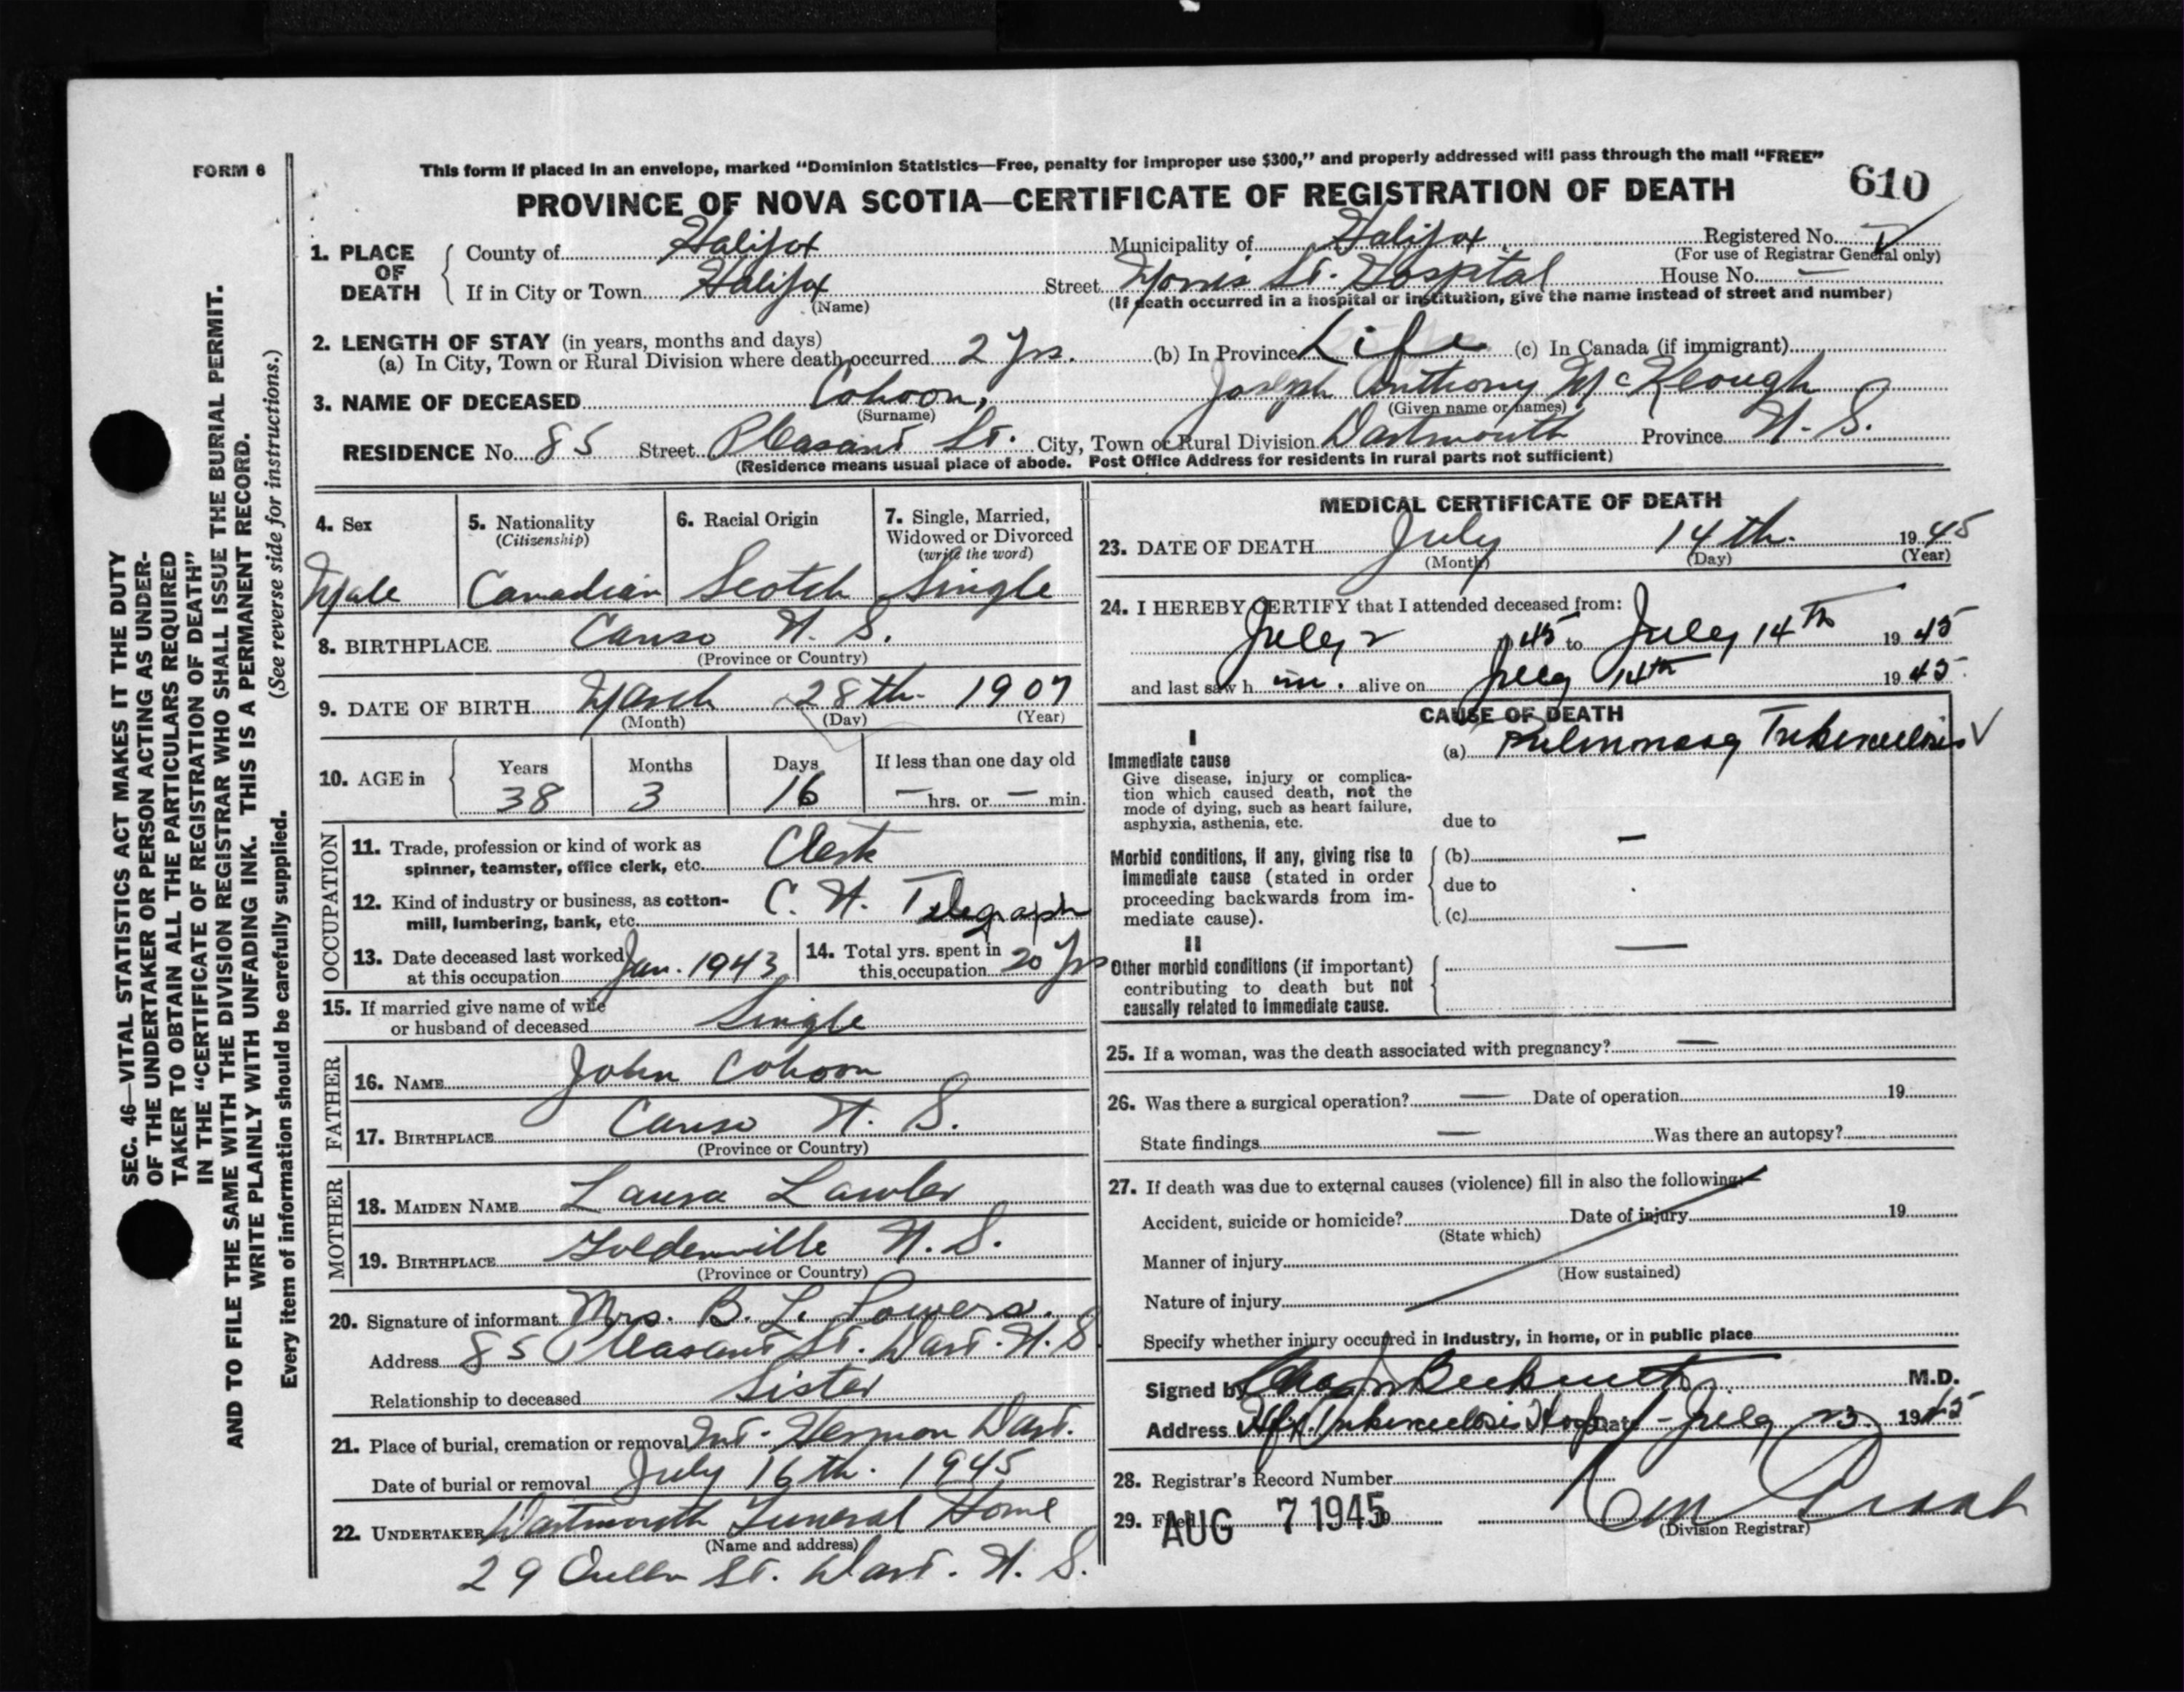 FORM 6
This form if placed in an envelope, marked “Dominion Statistics—Free, penalty for improper use $300,” and properly addressed will pass through the mail “FREE”
610
PROVINCE OF NOVA SCOTIA—CERTIFICATE OF REGISTRATION OF DEATH
1. PLACE OF DEATH
County of Halifax Municipality of Halifax Registered No.
(For use of Registrar General only)
If in City or Town Halifax Street Morris St. Hospital House No. —
(Name) (If death occurred in a hospital or institution, give the name instead of street and number)
2. LENGTH OF STAY (in years, months and days)
(a) In City, Town or Rural Division where death occurred 2 Yrs. (b) In Province Life (c) In Canada (if immigrant)
3. NAME OF DECEASED Cohoon, Joseph Anthony McKeough
(Surname) (Given name or names)
RESIDENCE No. 85 Street Pleasant St. City, Town or Rural Division Dartmouth Province N. S.
(Residence means usual place of abode. Post Office Address for residents in rural parts not sufficient)
4. Sex
Male
5. Nationality
(Citizenship)
Canadian
6. Racial Origin
Scotch
7. Single, Married,
Widowed or Divorced
(write the word)
Single
8. BIRTHPLACE Canso N. S.
(Province or Country)
9. DATE OF BIRTH March 28th 1907
(Month) (Day) (Year)
10. AGE in
Years Months Days If less than one day old
38 3 16 — hrs. or — min.
OCCUPATION
11. Trade, profession or kind of work as
spinner, teamster, office clerk, etc. Clerk
12. Kind of industry or business, as cotton-
mill, lumbering, bank, etc. C. N. Telegraph
13. Date deceased last worked
at this occupation Jan. 1943
14. Total yrs. spent in
this occupation 20 Yrs
15. If married give name of wife
or husband of deceased Single
FATHER
16. NAME John Cohoon
17. BIRTHPLACE Canso N. S.
(Province or Country)
MOTHER
18. MAIDEN NAME Laura Lawlor
19. BIRTHPLACE Goldenville N. S.
(Province or Country)
20. Signature of informant Mrs. B. L.
Address 85 Pleasant St. Dart. N. S
Relationship to deceased Sister
21. Place of burial, cremation or removal Mt. Hermon Dart.
Date of burial or removal July 16th. 1945
22. UNDERTAKER Dartmouth Funeral Home
(Name and address)
29 Queen St. Dart. N. S.
MEDICAL CERTIFICATE OF DEATH
23. DATE OF DEATH July 14th. 1945
(Month) (Day) (Year)
24. I HEREBY CERTIFY that I attended deceased from:
July 2 45 to July 14th 1945
and last saw h im. alive on July 14th 1945
CAUSE OF DEATH
I
Immediate cause
Give disease, injury or complica-
tion which caused death, not the
mode of dying, such as heart failure,
asphyxia, asthenia, etc.
(a) Pulmonary Tuberculosis
due to
Morbid conditions, if any, giving rise to
immediate cause (stated in order
proceeding backwards from im-
mediate cause).
(b) —
due to
(c)
II
Other morbid conditions (if important)
contributing to death but not
causally related to immediate cause.
—
25. If a woman, was the death associated with pregnancy? —
26. Was there a surgical operation? — Date of operation 19
State findings — Was there an autopsy?
27. If death was due to external causes (violence) fill in also the following:—
Accident, suicide or homicide? Date of injury 19
(State which)
Manner of injury
(How sustained)
Nature of injury
Specify whether injury occurred in industry, in home, or in public place
Signed by M.D.
Address Hfx. Tuberculosis Hosp Date - July 23 1945
28. Registrar's Record Number
29. Filed AUG 7 1945
(Division Registrar)
SEC. 46—VITAL STATISTICS ACT MAKES IT THE DUTY
OF THE UNDERTAKER OR PERSON ACTING AS UNDER-
TAKER TO OBTAIN ALL THE PARTICULARS REQUIRED
IN THE “CERTIFICATE OF REGISTRATION OF DEATH”
AND TO FILE THE SAME WITH THE DIVISION REGISTRAR WHO SHALL ISSUE THE BURIAL PERMIT.
WRITE PLAINLY WITH UNFADING INK. THIS IS A PERMANENT RECORD.
(See reverse side for instructions.)
Every item of information should be carefully supplied.